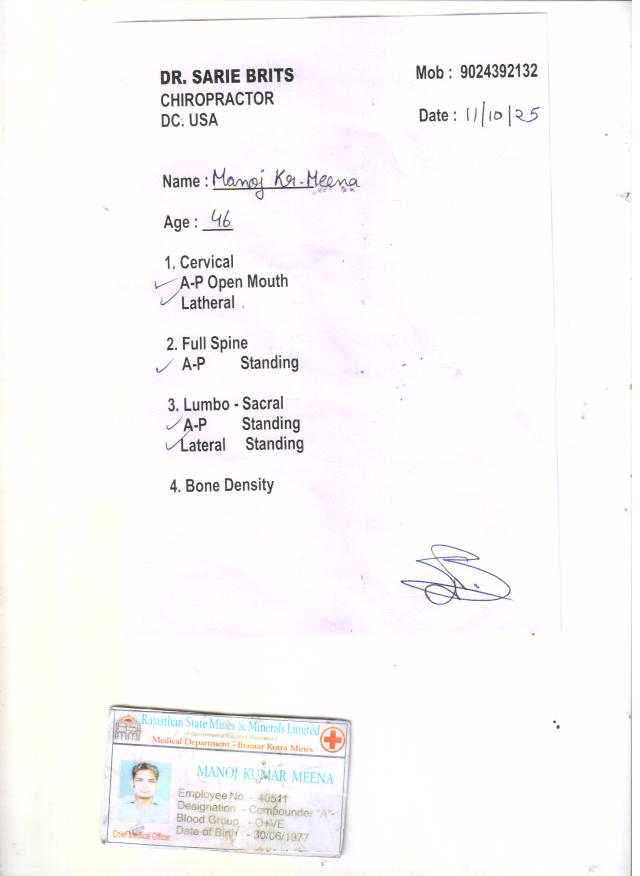 DR. SARIE BRITS
CHIROPRACTOR
DC. USA
Mob : 9024392132
Date : 11/10/25
Name : Manoj Kr. Meena
Age : 46
1. Cervical
A-P Open Mouth
Latheral
2. Full Spine
A-P Standing
3. Lumbo - Sacral
A-P Standing
Lateral Standing
4. Bone Density
Rajasthan State Mines & Minerals Limited
Medical Department - Jhamar Kotra Mines
MANOJ KUMAR MEENA
Employee No. - 40511
Designation - Compounder "A"-
Blood Group - O+VE
Date of Birth - 30/06/1977
Chief Medical Officer